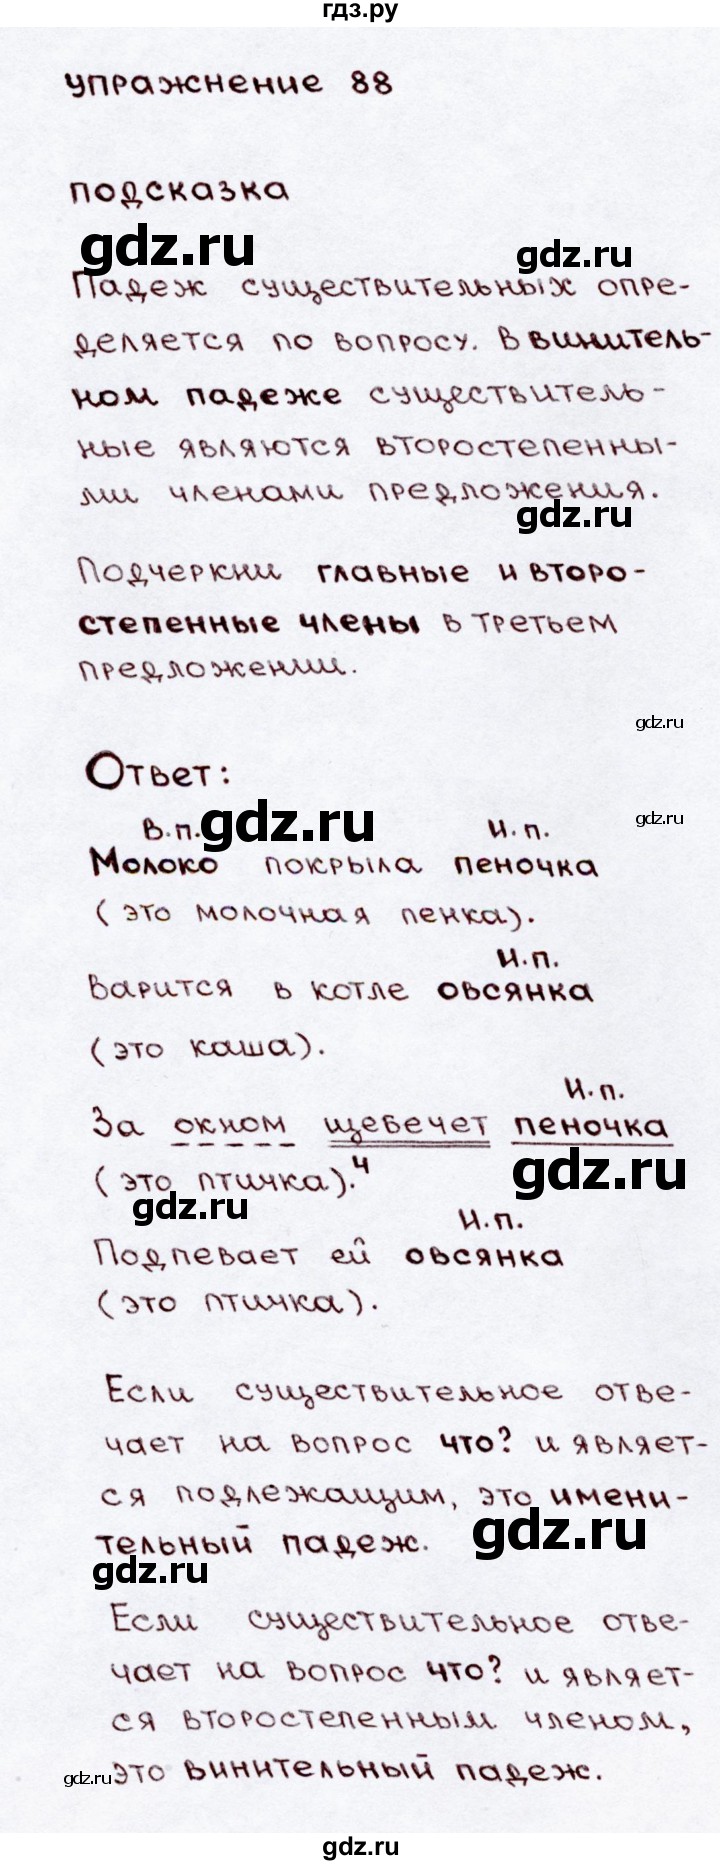 гдз.ру
упражнение 88
подсказка
gdz.ru
gdz.ru
Падеж существительных опре-
деляется по вопросу. В винитель-
ном падеже существитель-
ные являются второстепенны-
ми членами предложения.
gdz.ru
Подчеркни главные и второ-
степенные члены в третьем
предложении.
gdz.ru
Ответ:
В.п. gdz.ru И.п. gdz.ru
Молоко покрыла пеночка
(это молочная пенка).
И.п.
Варится в котле овсянка
(это каша).
И.п.
За окном щебечет пеночка
(это птичка).4 gdz.ru
gdz.ru И.п.
Подпевает ей овсянка
(это птичка).
Если существительное отве-
чает на вопрос что? и являет-
ся подлежащим, это имени-
тельный падеж. gdz.ru
gdz.ru
Если существительное отве-
чает на вопрос что? и являет-
ся второстепенным членом,
gdz.ru это винительный падеж.
gdz.ru